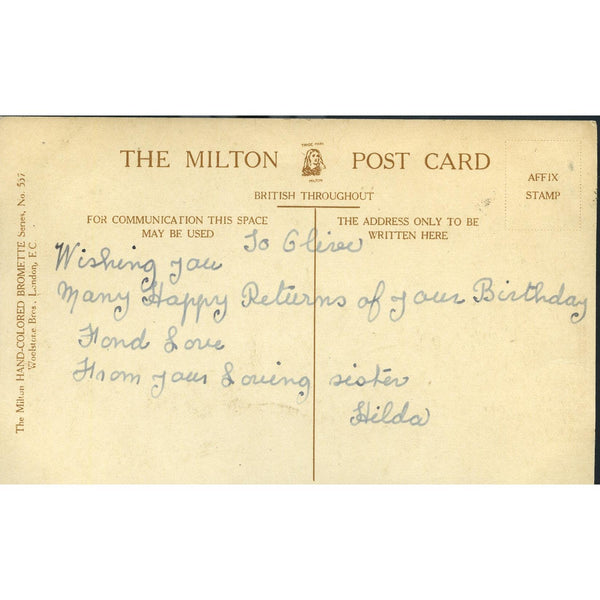 THE MILTON
TRADE MARK
MILTON
POST CARD
BRITISH THROUGHOUT
AFFIX
STAMP
FOR COMMUNICATION THIS SPACE
MAY BE USED
THE ADDRESS ONLY TO BE
WRITTEN HERE
To Olive
Wishing you
Many Happy Returns of your Birthday
Fond Love
From your Loving sister
Hilda
The Milton HAND-COLORED BROMETTE Series, No. 557
Woolstone Bros., London, E.C.